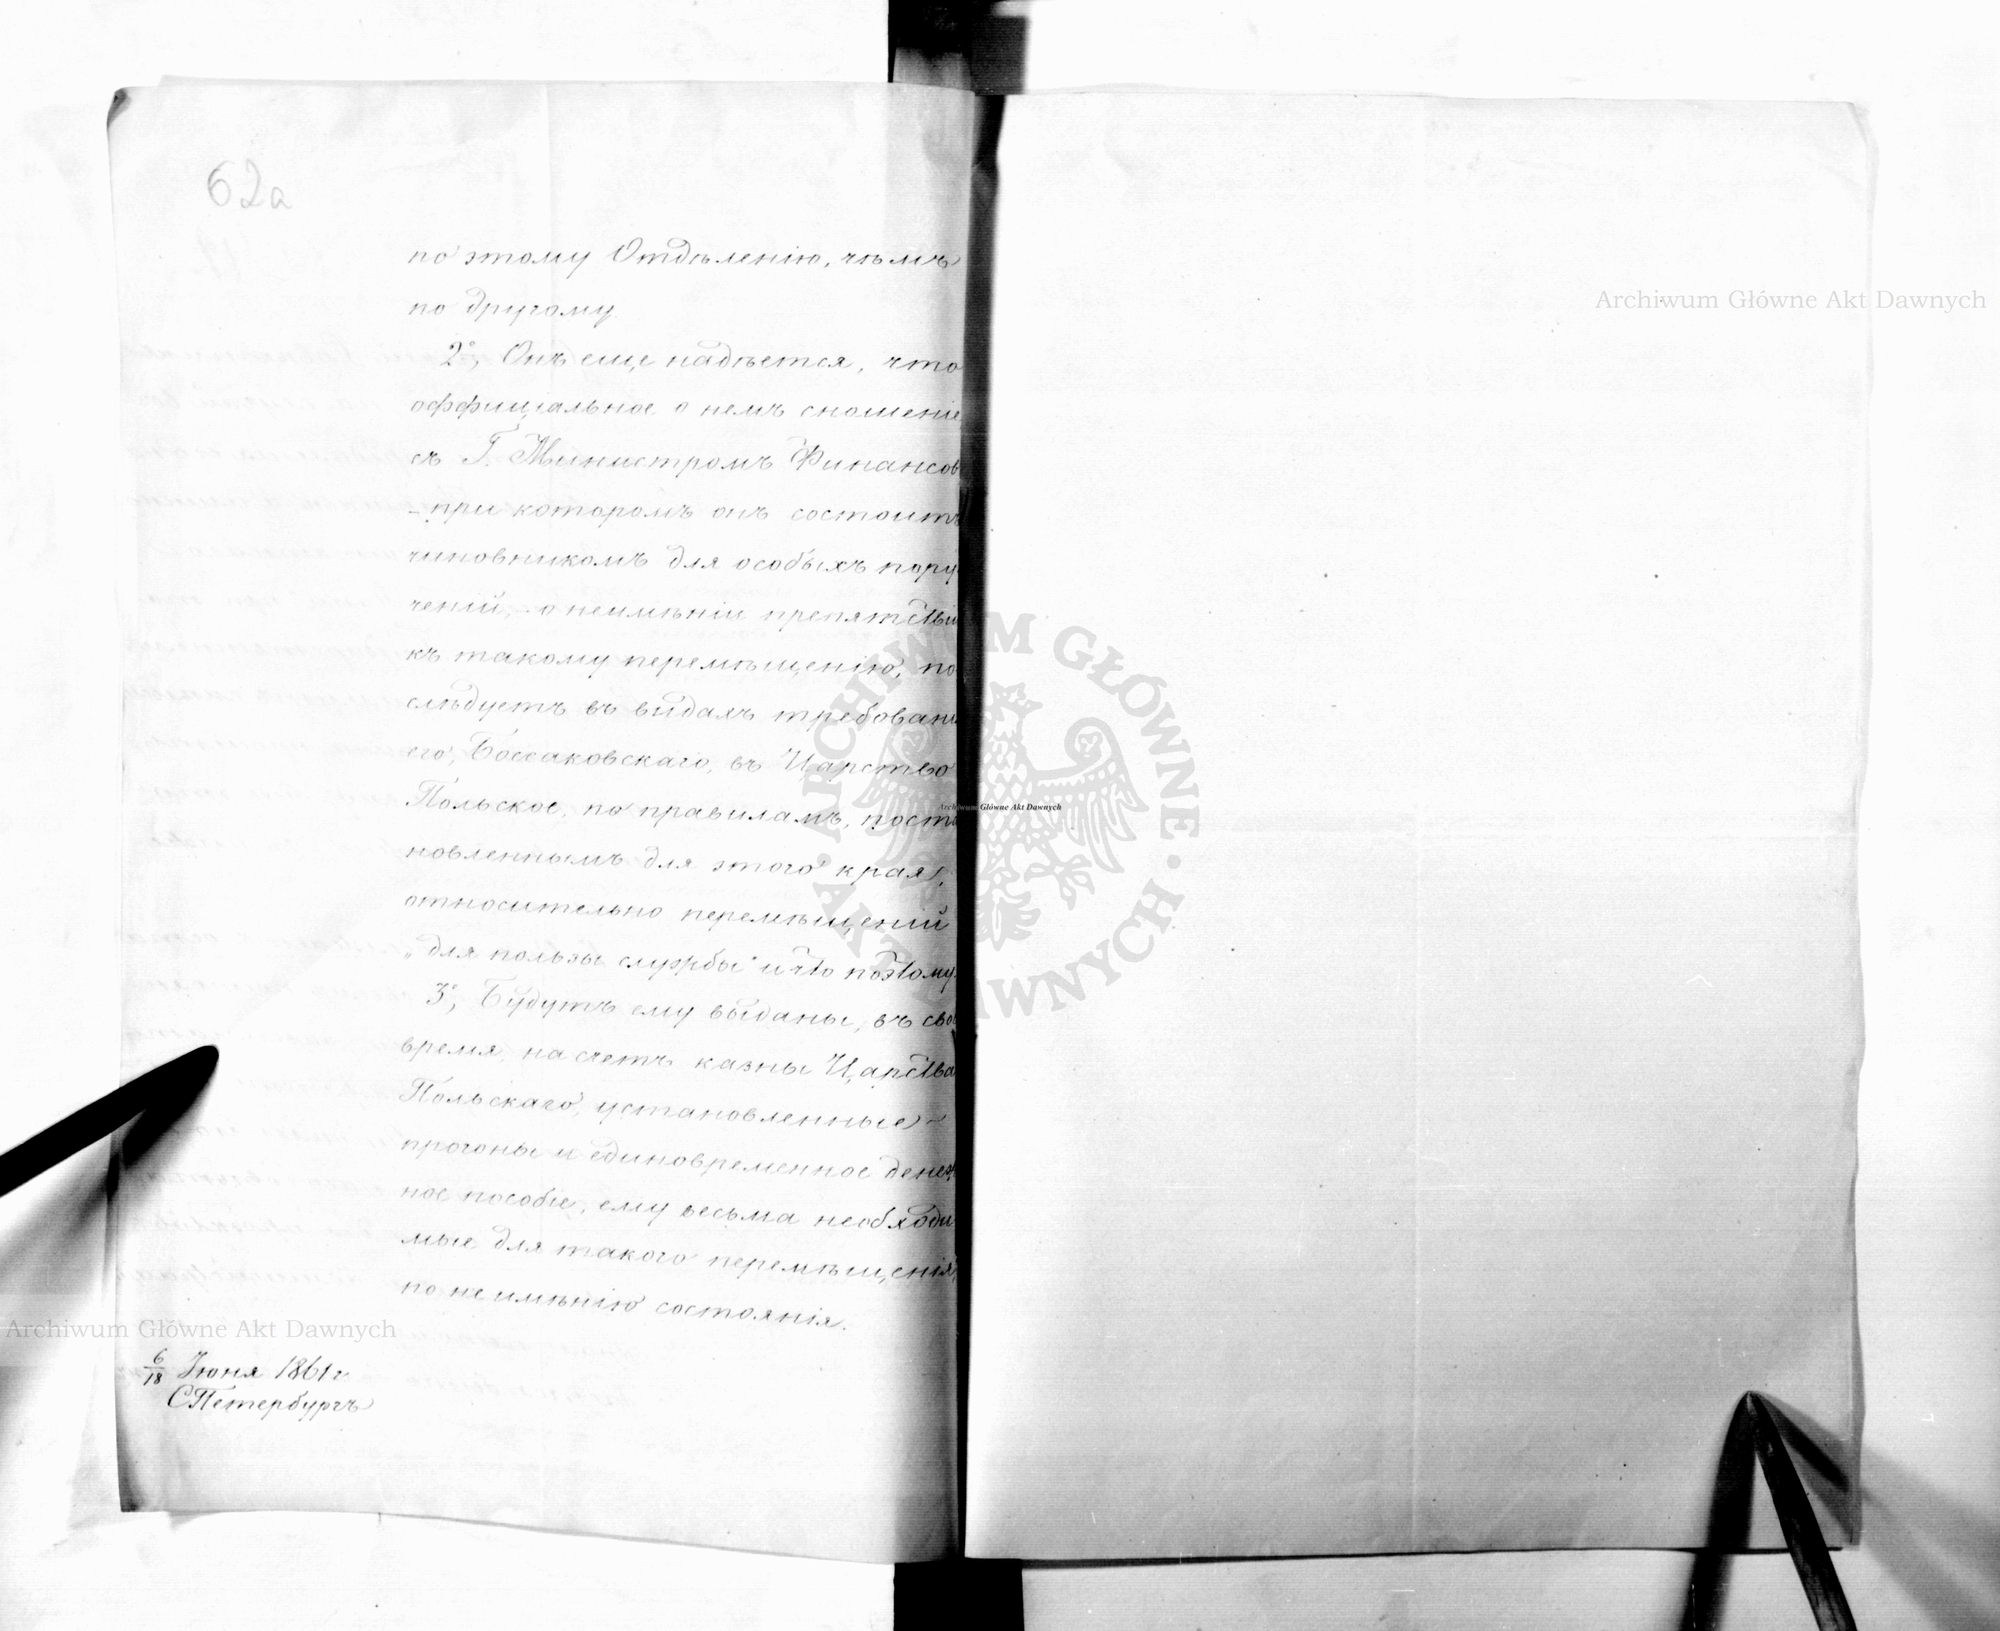 62а
по этому Отдѣленію, чѣмъ
по другому.
2°, Онъ еще надѣется, что
оффиціальное о немъ сношеніе
съ Г. Министромъ Финансов
– при которомъ онъ состоитъ
чиновникомъ для особыхъ пору
ченій, – о неимѣніи препятствій
къ такому перемѣщенію, по
слѣдуетъ въ видахъ требовані
его, Боссаковскаго, въ Царство
Польское, по правиламъ, поста
новленнымъ для этого края,
относительно перемѣщеній
„для пользы службы" и что поэтому
3°, Будутъ ему выданы, въ свое
время, на счетъ казны Царства
Польскаго, установленные
прогоны и единовременное денеж
ное пособіе, ему весьма необходи
мые для такого перемѣщенія,
по неимѣнію состоянія.
6/18 Іюня 1861 г.
СПетербургъ
Archiwum Główne Akt Dawnych
Archiwum Główne Akt Dawnych
Archiwum Główne Akt Dawnych
ARCHIWUM GŁÓWNE · AKT DAWNYCH ·